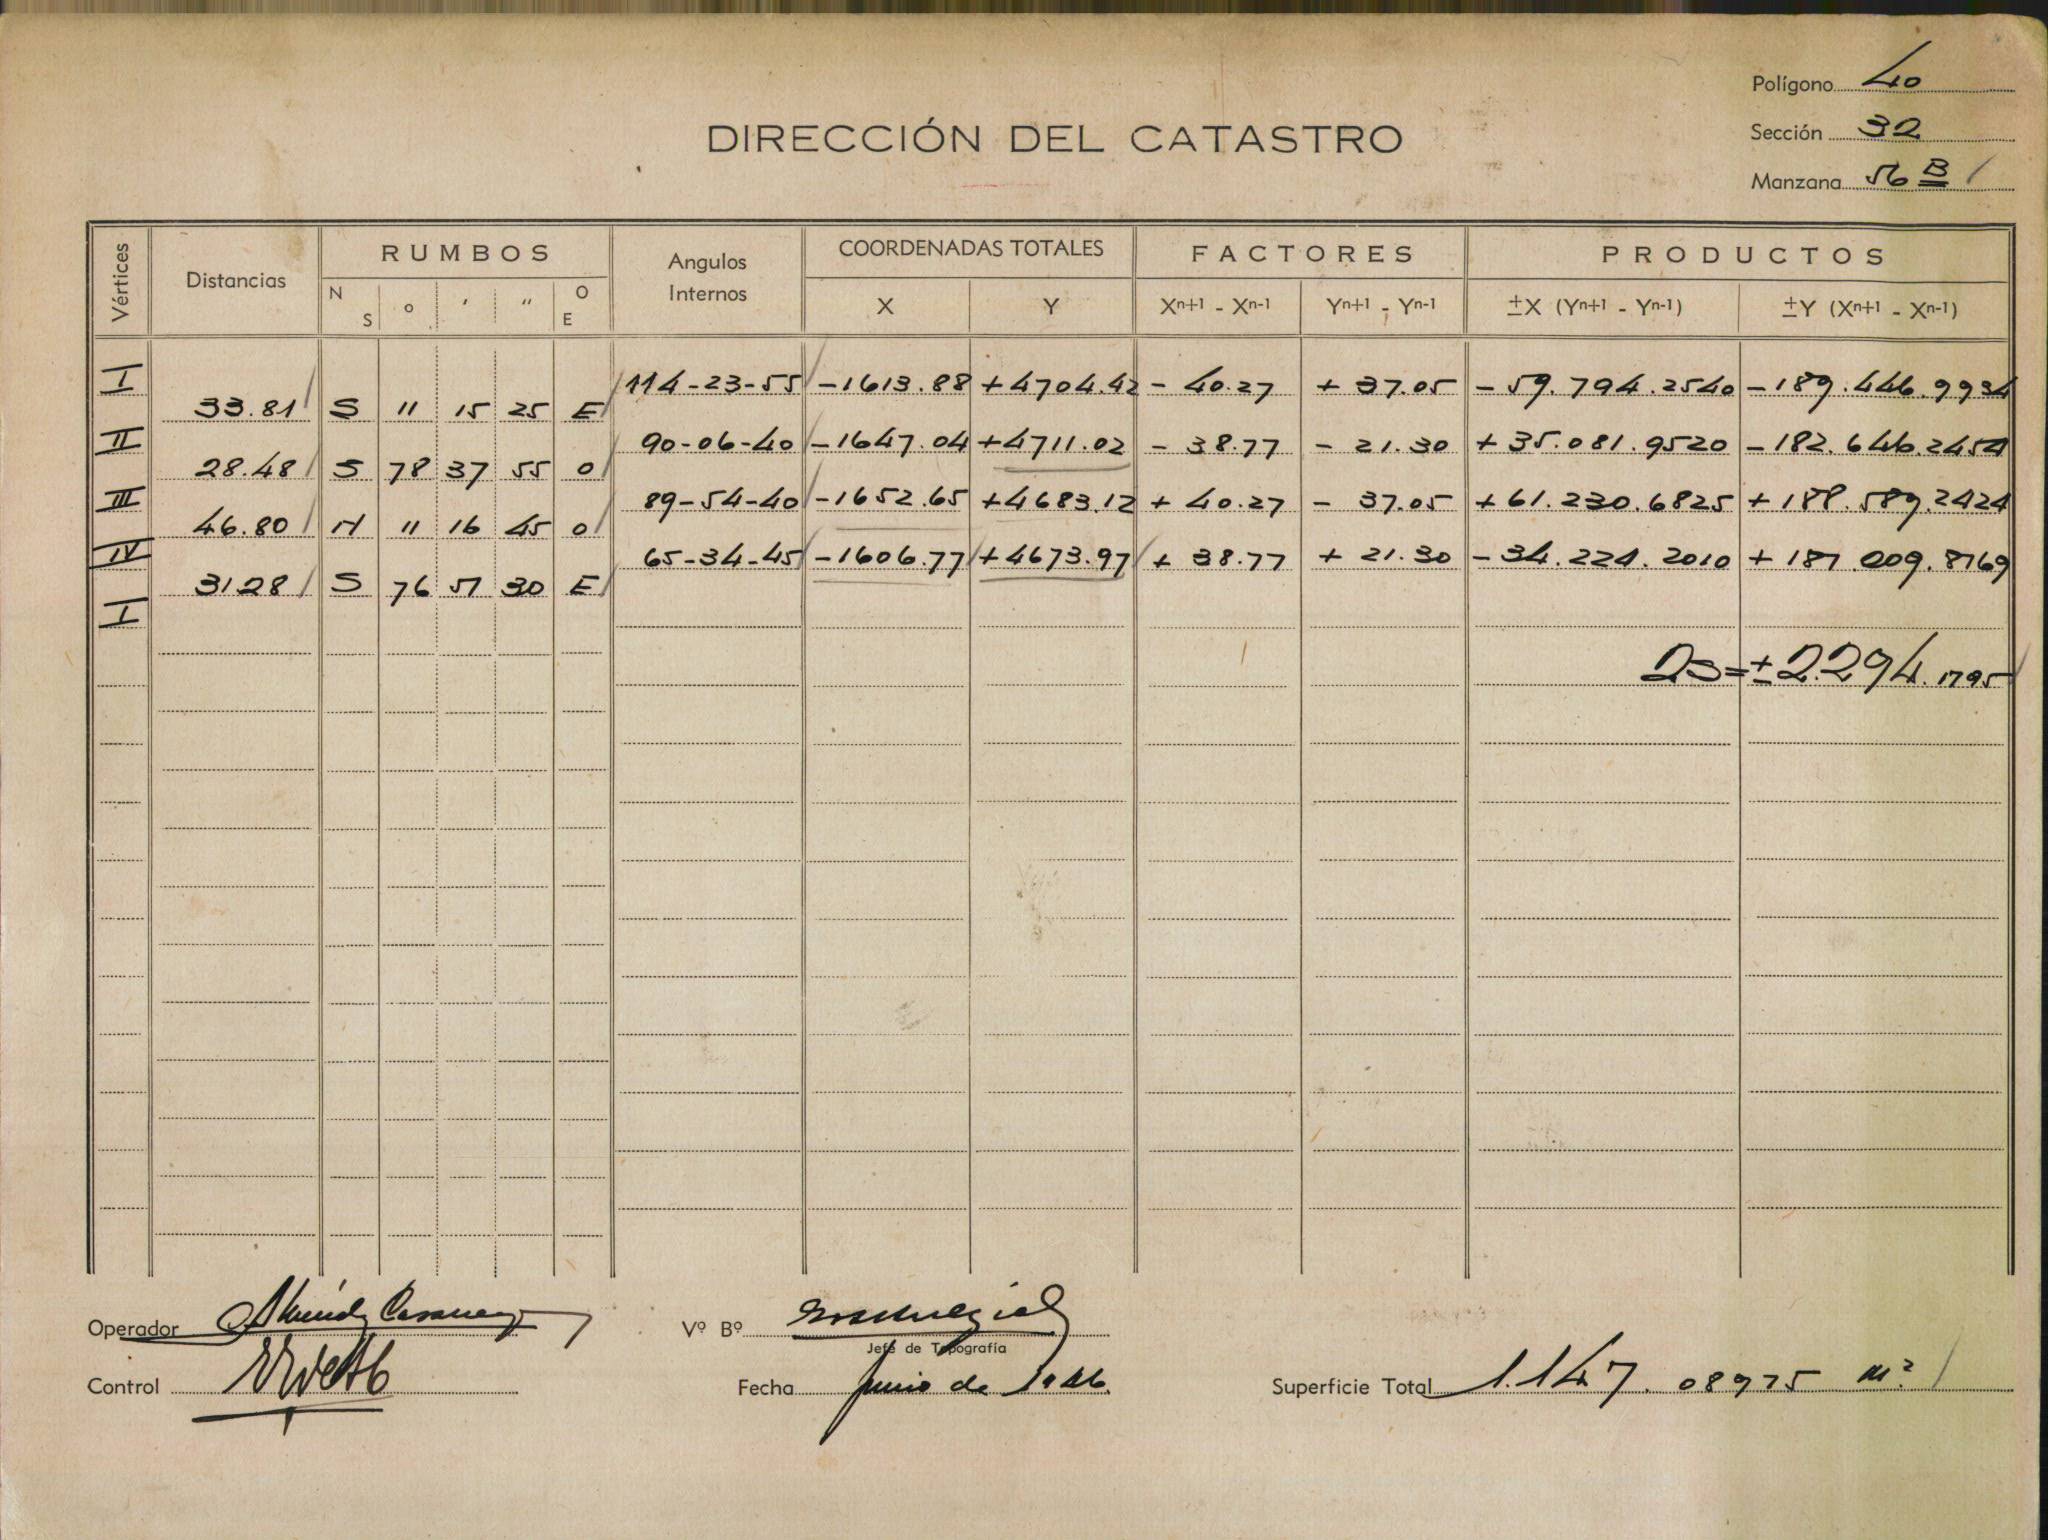 Polígono 40
DIRECCIÓN DEL CATASTRO
Sección 32
Manzana 56 B
Vértices Distancias RUMBOS Angulos Internos COORDENADAS TOTALES FACTORES PRODUCTOS
N S ° ' " O E X Y Xn+1 - Xn-1 Yn+1 - Yn-1 ±X (Yn+1 - Yn-1) ±Y (Xn+1 - Xn-1)
I 114-23-55 -1613.88 +4704.42 - 40.27 + 37.05 -59.794.2540 -189.446.9934
33.81 S 11 15 25 E
II 90-06-40 -1647.04 +4711.02 - 38.77 - 21.30 +35.081.9520 -182.646.2454
28.48 S 78 37 55 O
III 89-54-40 -1652.65 +4683.12 + 40.27 - 37.05 +61.230.6825 +188.589.2424
46.80 N 11 16 45 O
IV 65-34-45 -1606.77 +4673.97 + 38.77 + 21.30 -34.224.2010 +181.209.8169
31.28 S 76 51 30 E
I
2S=±2.294.1795
Operador
Vº Bº
Jefe de Topografía
Control
Fecha junio de 1946.
Superficie Total 1.147.08975 m²